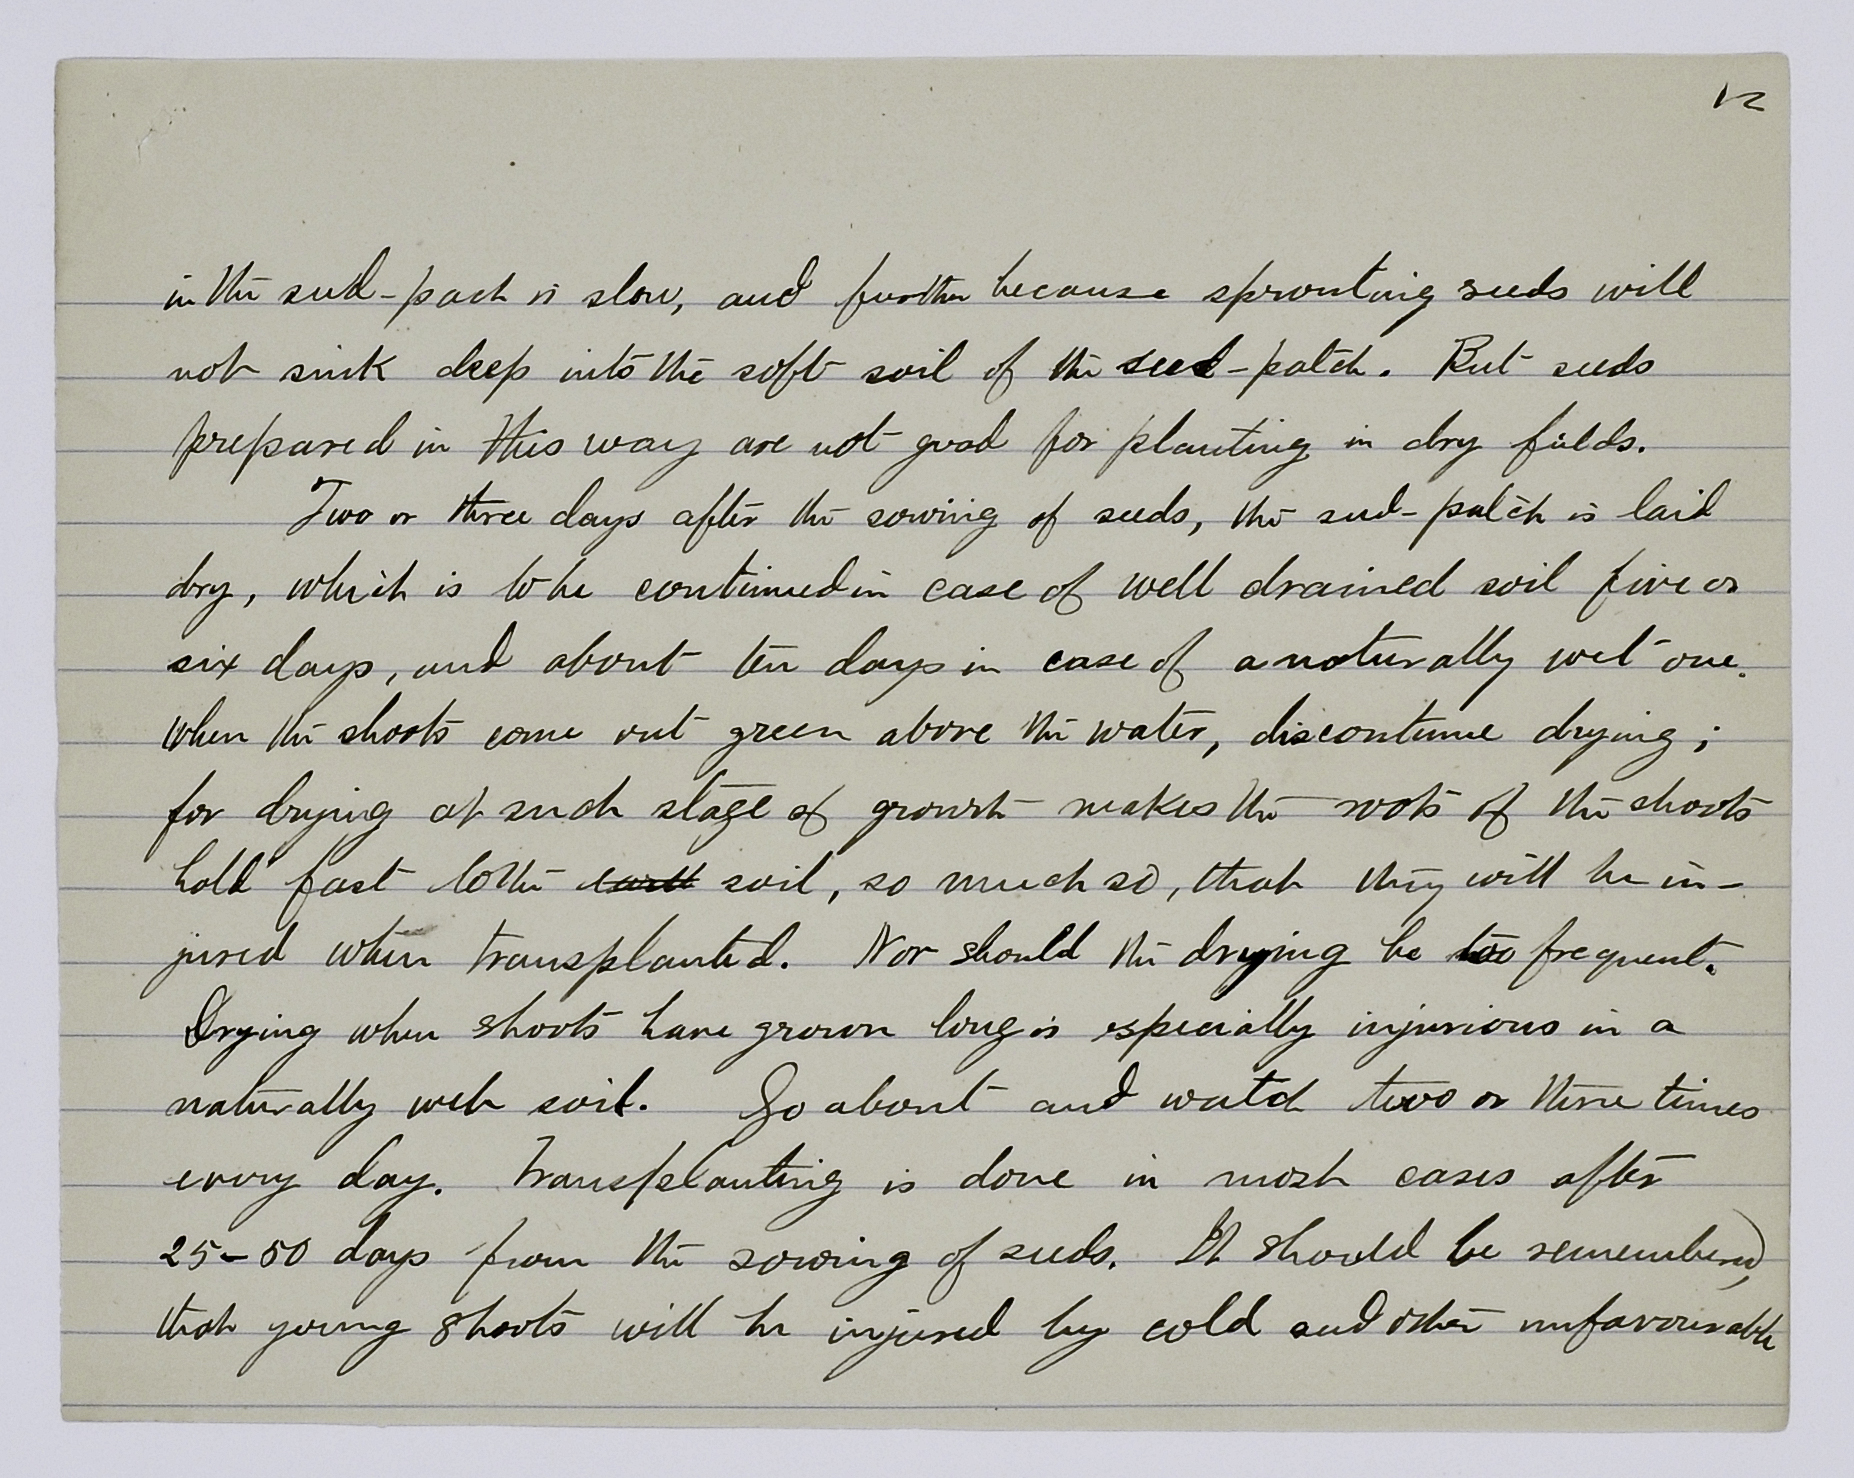 12
in the seed-pach is slow, and further because sprouting seeds will
not sink deep into the soft soil of the seed-patch. But seeds
prepared in this way are not good for planting in dry fields.
Two or three days after the sowing of seeds, the seed-patch is laid
dry, which is to be continued in case of well drained soil five or
six days, and about ten days in case of a naturally wet one.
when the shoots come out green above the water, discontinue drying;
for drying at such stage of growth makes the roots of the shoots
hold fast to the earth soil, so much so, that they will be in-
jured when transplanted. Nor should the drying be too frequent.
Drying when shoots have grown long is especially injurious in a
naturally wet soil. Go about and watch two or three times
every day. Transplanting is done in most cases after
25-50 days from the sowing of seeds. It should be remembered,
that young shoots will be injured by cold and other unfavourable